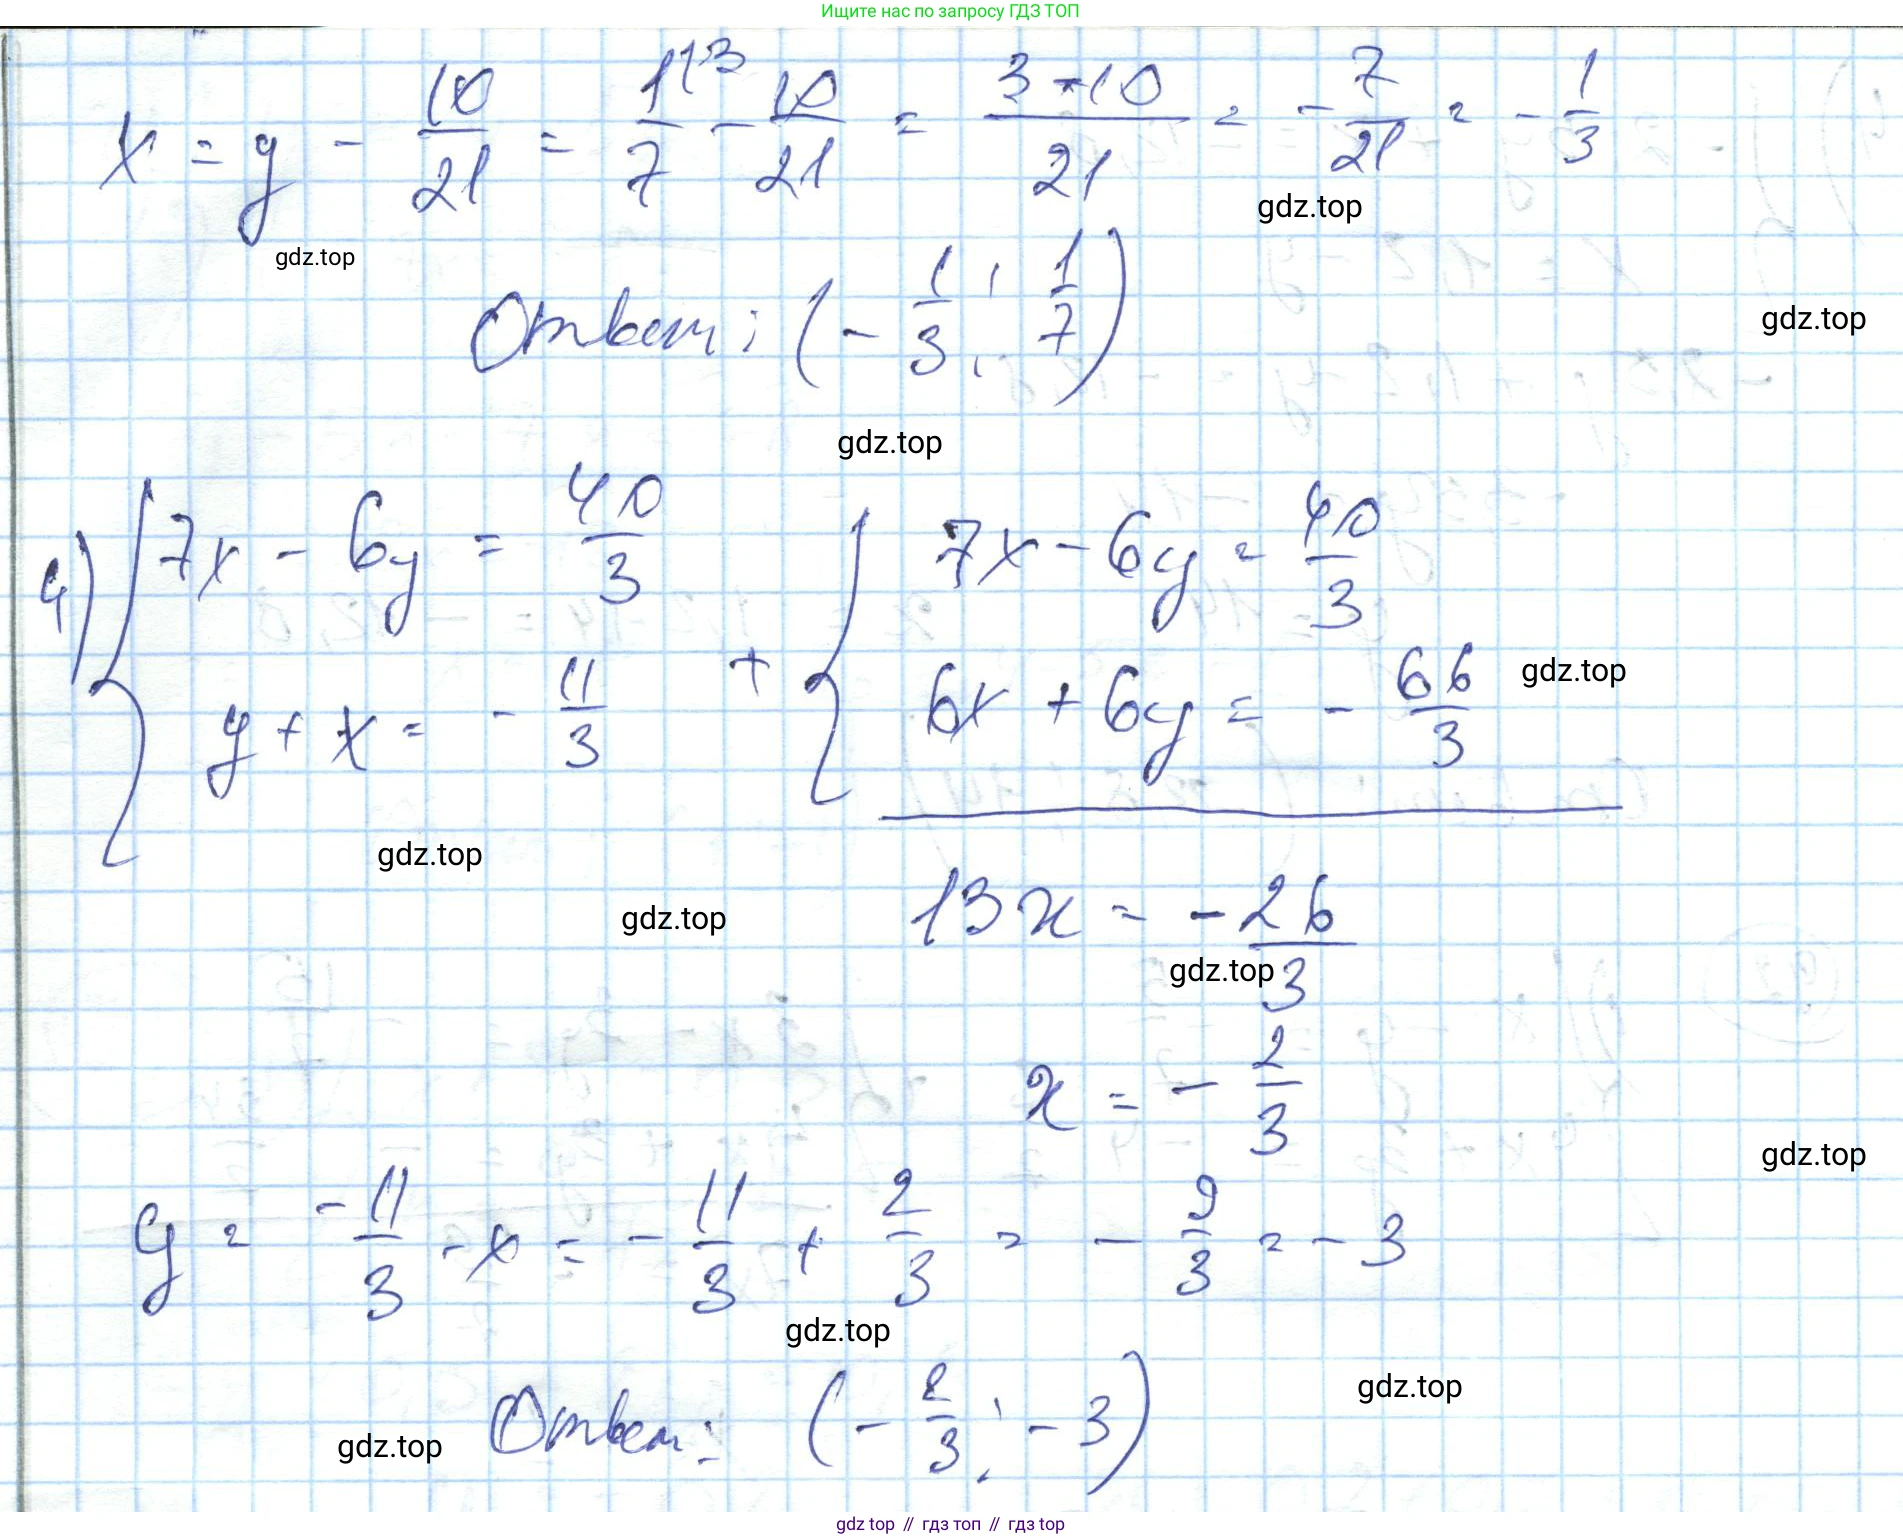 Ищите нас по запросу ГДЗ ТОП
x = y - 10/21 = 1/7^(3 - 10/21 = (3-10)/21 = -7/21 = -1/3
gdz.top
gdz.top
Ответ: (-1/3; 1/7)
gdz.top
gdz.top
4) { 7x - 6y = 40/3 + { 7x - 6y = 40/3
y + x = -11/3 6x + 6y = -66/3
gdz.top
gdz.top
gdz.top
13x = -26/3
gdz.top
x = -2/3
gdz.top
y = -11/3 - x = -11/3 + 2/3 = -9/3 = -3
gdz.top
gdz.top
Ответ: (-2/3; -3)
gdz.top
gdz top // гдз топ // гдз top